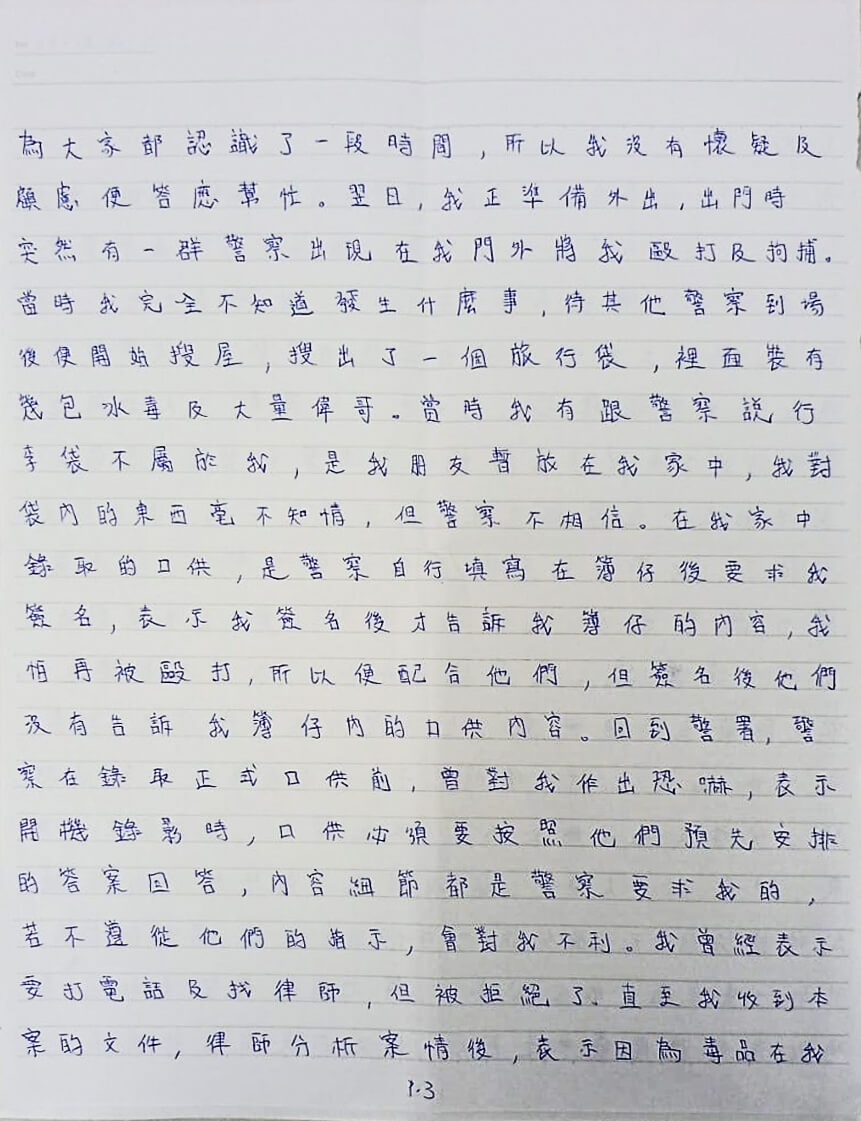 為大家都認識了一段時間,所以我沒有懷疑及
顧慮便答應幫忙。翌日,我正準備外出,出門時
突然有一群警察出現在我門外將我毆打及拘捕。
當時我完全不知道發生什麼事,待其他警察到場
後便開始搜屋,搜出了一個旅行袋,裡面裝有
幾包冰毒及大量偉哥。當時我有跟警察說行
李袋不屬於我,是我朋友暫放在我家中,我對
袋內的東西毫不知情,但警察不相信。在我家中
錄取的口供,是警察自行填寫在簿仔後要求我
簽名,表示我簽名後才告訴我簿仔的內容,我
怕再被毆打,所以便配合他們,但簽名後他們
沒有告訴我簿仔內的口供內容。回到警署,警
察在錄取正式口供前,曾對我作出恐嚇,表示
開機錄影時,口供必須要按照他們預先安排
的答案回答,內容細節都是警察要求我的,
若不遵從他們的指示,會對我不利。我曾經表示
要打電話及找律師,但被拒絕了。直至我收到本
案的文件,律師分析案情後,表示因為毒品在我
P.3